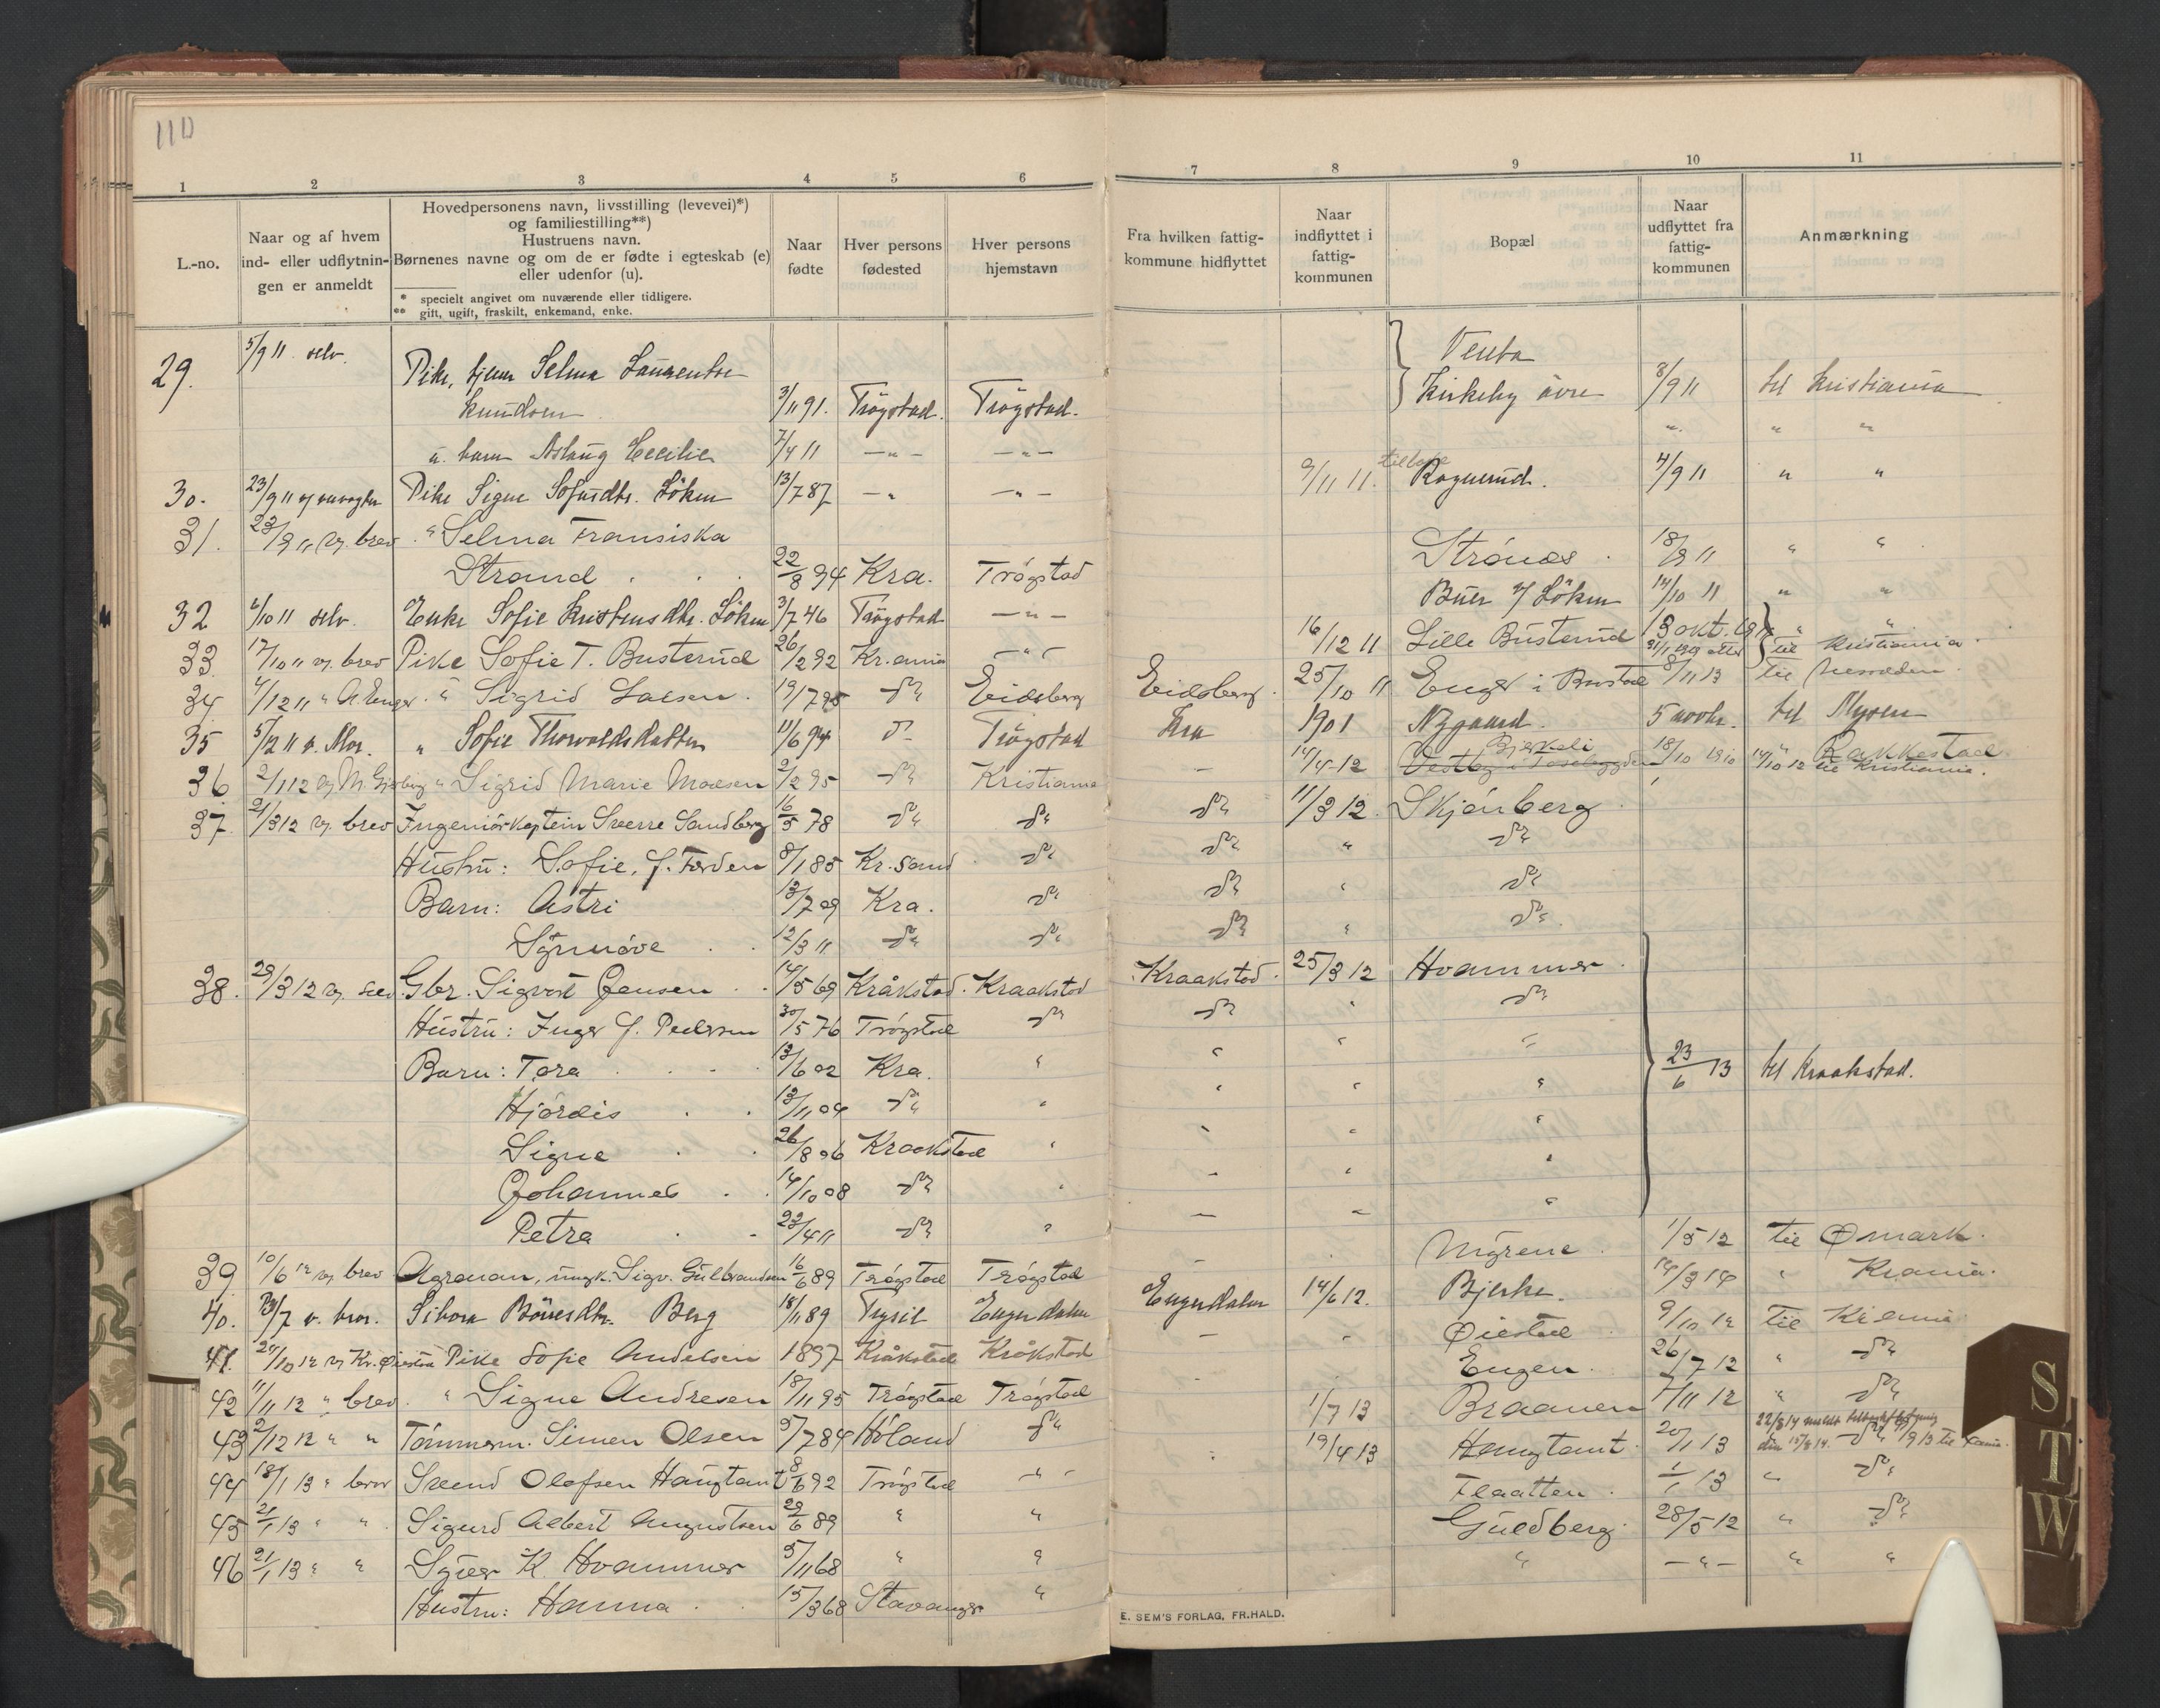 110
1 2 3 4 5 6 7 8 9 10 11
L.-no.
Naar og af hvem ind- eller udflytningen er anmeldt
Hovedpersonens navn, livsstilling (levevei)*) og familiestilling**)
Hustruens navn.
Børnenes navne og om de er fødte i egteskab (e) eller udenfor (u).
* specielt angivet om nuværende eller tidligere.
** gift, ugift, fraskilt, enkemand, enke.
Naar fødte
Hver persons fødested
Hver persons hjemstavn
Fra hvilken fattigkommune hidflyttet
Naar indflyttet i fattigkommunen
Bopæl
Naar udflyttet fra fattigkommunen
Anmærkning
29. 5/9 11 selv. Pike, Selma Venta
Knudsen 3/11 91. Trøgstad. Trøgstad. Kirkeby øvre 8/9 11 til Kristiania
u. barn Aslaug Cecilie 7/4 11 — " — — " — " " "
30. 23/9 11 Pike Signe Sofusdtr. Löken 13/7 87 — " — " — 9/11 11. Rognerud. 4/9 11 " "
31. 23/9 11 vg. brev " Selma Fransiska
Strand 22/8 94 Kra. Trøgstad Strønes 18/9 11 " "
32 6/10 11 selv. Enke Sofie Kristensdtr. Löken 3/7 46 Trøgstad — " — Buer v/ Löken 14/10 11 " "
33. 17/10 11 vg. brev Pike Sofie T. Busterud 26/2 92 Kr.ania — " — 16/12 11 Lille Busterud 13 okt. til Kristiania
34 4/12 11 " A. Enger " Sigrid Larsen. 19/7 95 do Eidsberg Eidsberg. 25/10 11 Enger i Bustad 8/11 13 til
35 5/12 11 v. Mor. " Sofie Thorvaldsdatter 11/6 94 do Trøgstad Kra 1901 Nygaard. 5 novbr. til Mysen
36 2/1 12 vg M. " Sigrid Marie Madsen 2/2 95 do Kristiania — 14/4 12 Vestby Bjerkeli 18/10 " Rakkestad
14/10 12 til Kristiania.
37. 21/3 12 vg. brev Ingeniørkaptein Sverre Sandberg 16/5 78 do do do 11/3 12. Skjønberg
Hustru: Sofie, f. Forden 8/1 85 Kr.sand do do " do
Barn: Astri 13/7 09 Kra. do do " do
Synnøve 12/3 11 do do do " do.
38. 29/3 12 vg. selv. Gbr. Sigvart Jensen 14/5 69 Kråkstad. Kraakstad Kraakstad. 25/3 12 Hvammer
Hustru: Inger f. Pedersen 30/5 76 Trøgstad do do " do
Barn: Tora 13/6 02 Kra. " " " " 23/6 13 til Kraakstad.
Hjørdis 13/11 04 do " " " "
Signe 26/8 06 Kraakstad " " " "
Johannes 14/10 08 do " " " "
Petra 22/4 11 do " — — "
39. 10/6 12 vg. brev Agronom, ungk. Sigv. Gulbrandsen 16/6 89 Trøgstad Trøgstad — Myrene 1/5 12 til Ømark.
40. 23/7 v. bror. Sibora Börresdtr. Berg 18/1 89 Trysil Engerdalen Engerdalen 14/6 12. Bjerke. 14/3 14 " Krania.
41. 24/10 12 vg Kr. Øiestad Pike Sofie Andersen 1897 Kråkstad Kråkstad — " Øiestad 9/10 12 til Krania
42 11/11 12 " brev. " Signe Andresen 18/11 95 Trøgstad Trøgstad Engen. 26/7 12 " do
43 2/12 12 " " Tømmerm. Simen Olsen 5/7 84 Høland do 1/7 13 Braanen 7/11 12 " do
44 18/1 13 " bror Svend Olafsen Haugtamt 8/6 92 Trøgstad " 19/4 13 Haugtamt. 20/1 13 22/8 14 meldt do
45 21/1 13 " " Sigurd Albert Augustsen 29/6 89 " " Flaatten. 1/1 13 " do
46 21/1 13 " " Syver K. Hvammer 5/11 68 " " Guldberg. 28/5 12 " do
Hustru: Hanna 15/3 68 Stavanger " " — " — " "
E. SEM'S FORLAG, FR.HALD.
S
T
W